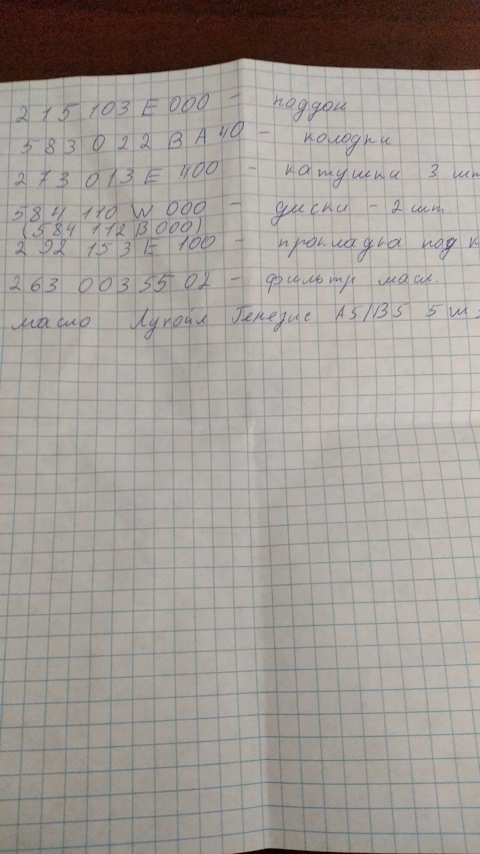 215 103 E 000 - поддон
583 0 22 B A 40 - колодки
273 013 E 400 - катушки 3 шт
584 110 W 000 - диски - 2 шт.
(584 112 B 000)
292 153 E 100 - прокладка под к
263 003 55 02 - фильтр масл.
масло Лукойл Генезис A5/B5 5 W